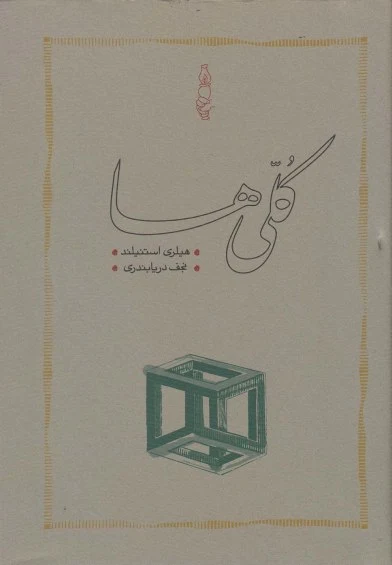 کُلّی ها
هیلری استنیلند
نجف دریابندری